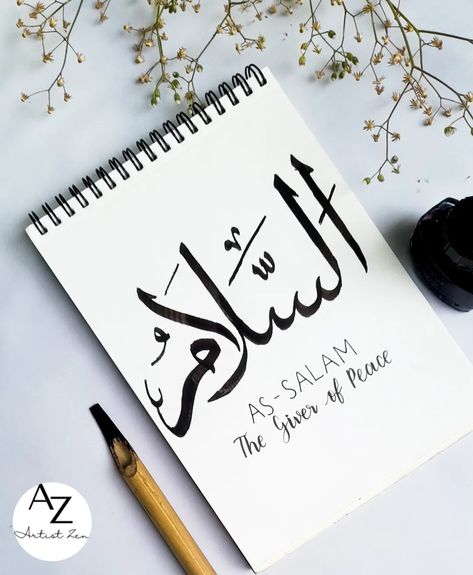 السَّلَامُ
AS-SALAM
The Giver of Peace
AZ
Artist Zen